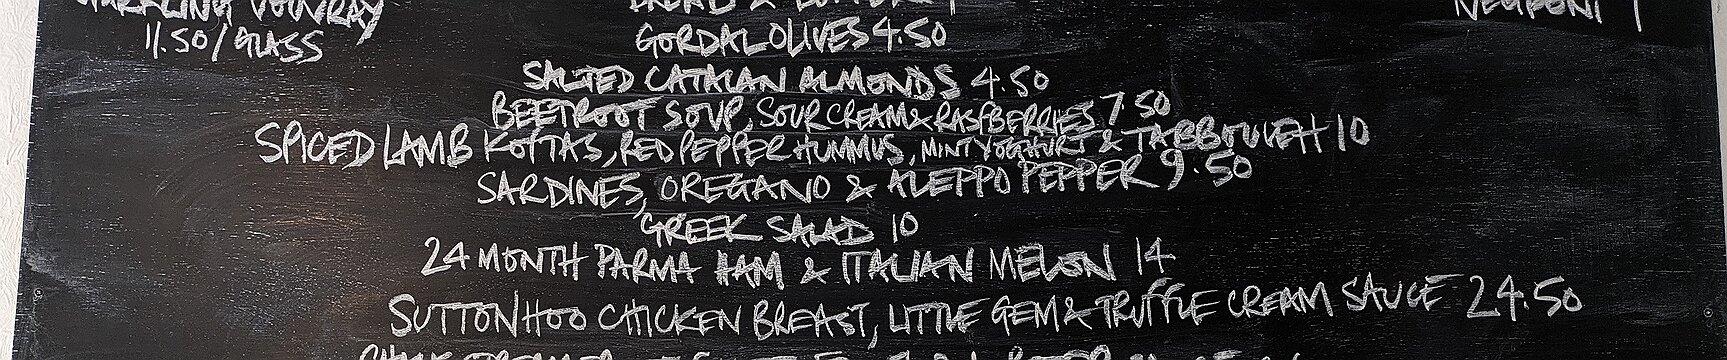 SPARKLING VOUVRAY
11.50/GLASS
NEGRONI
GORDAL OLIVES 4.50
SALTED CATALAN ALMONDS 4.50
BEETROOT SOUP, SOUR CREAM & RASPBERRIES 7.50
SPICED LAMB KOFTAS, RED PEPPER HUMMUS, MINT YOGHURT & TABBOULEH 10
SARDINES, OREGANO & ALEPPO PEPPER 9.50
GREEK SALAD 10
24 MONTH PARMA HAM & ITALIAN MELON 14
SUTTON HOO CHICKEN BREAST, LITTLE GEM & TRUFFLE CREAM SAUCE 24.50